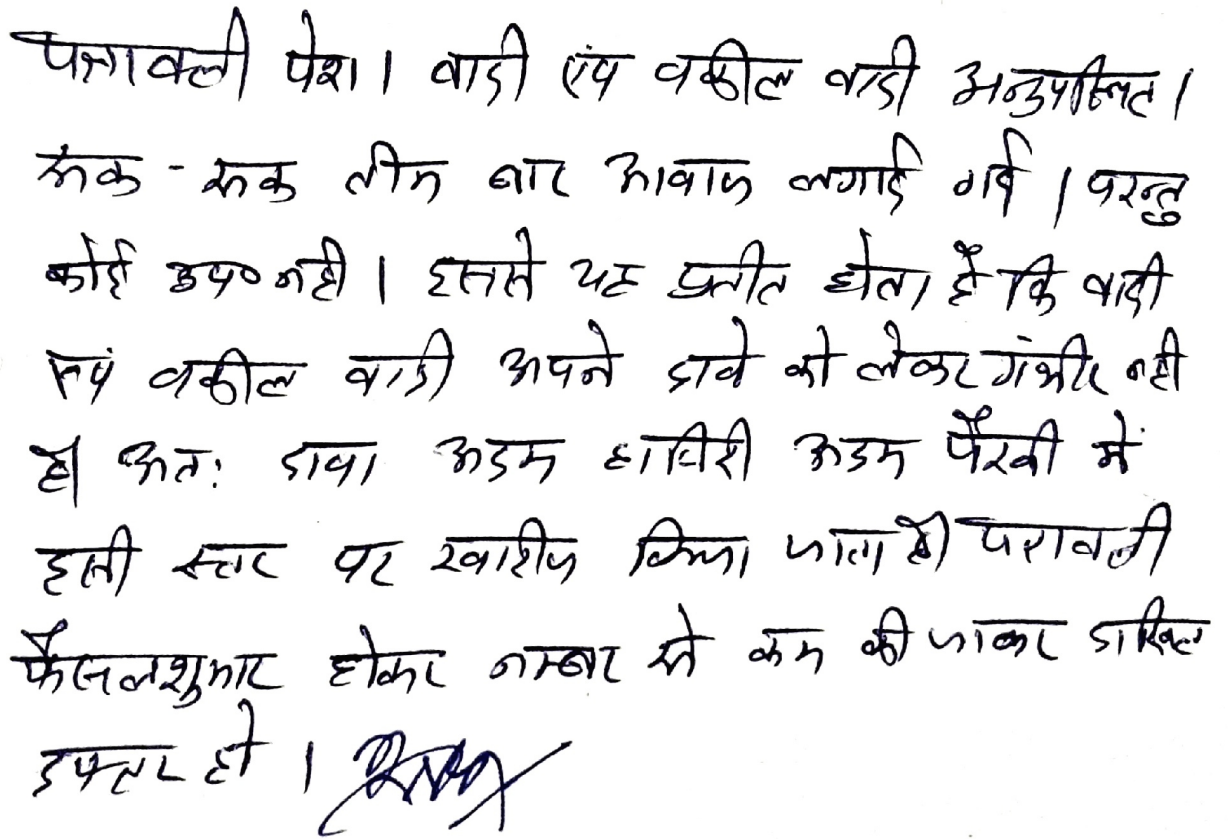 पत्रावली पेश। वादी एंव वकील वादी अनुपस्थित।
रूक - रूक तीन बार आवाज लगाई गई। परन्तु
कोई उप० नही। इससे यह प्रतीत होता है कि वादी
एवं वकील वादी अपने दावे को लेकर गंभीर नही
है। अत: दावा अदम हाजिरी अदम पैरवी में
इसी स्तर पर खारीज किया जाता है। पत्रावली
फैसलशुमार होकर नम्बर से कम की जाकर दाखिल
दफ्तर हो।